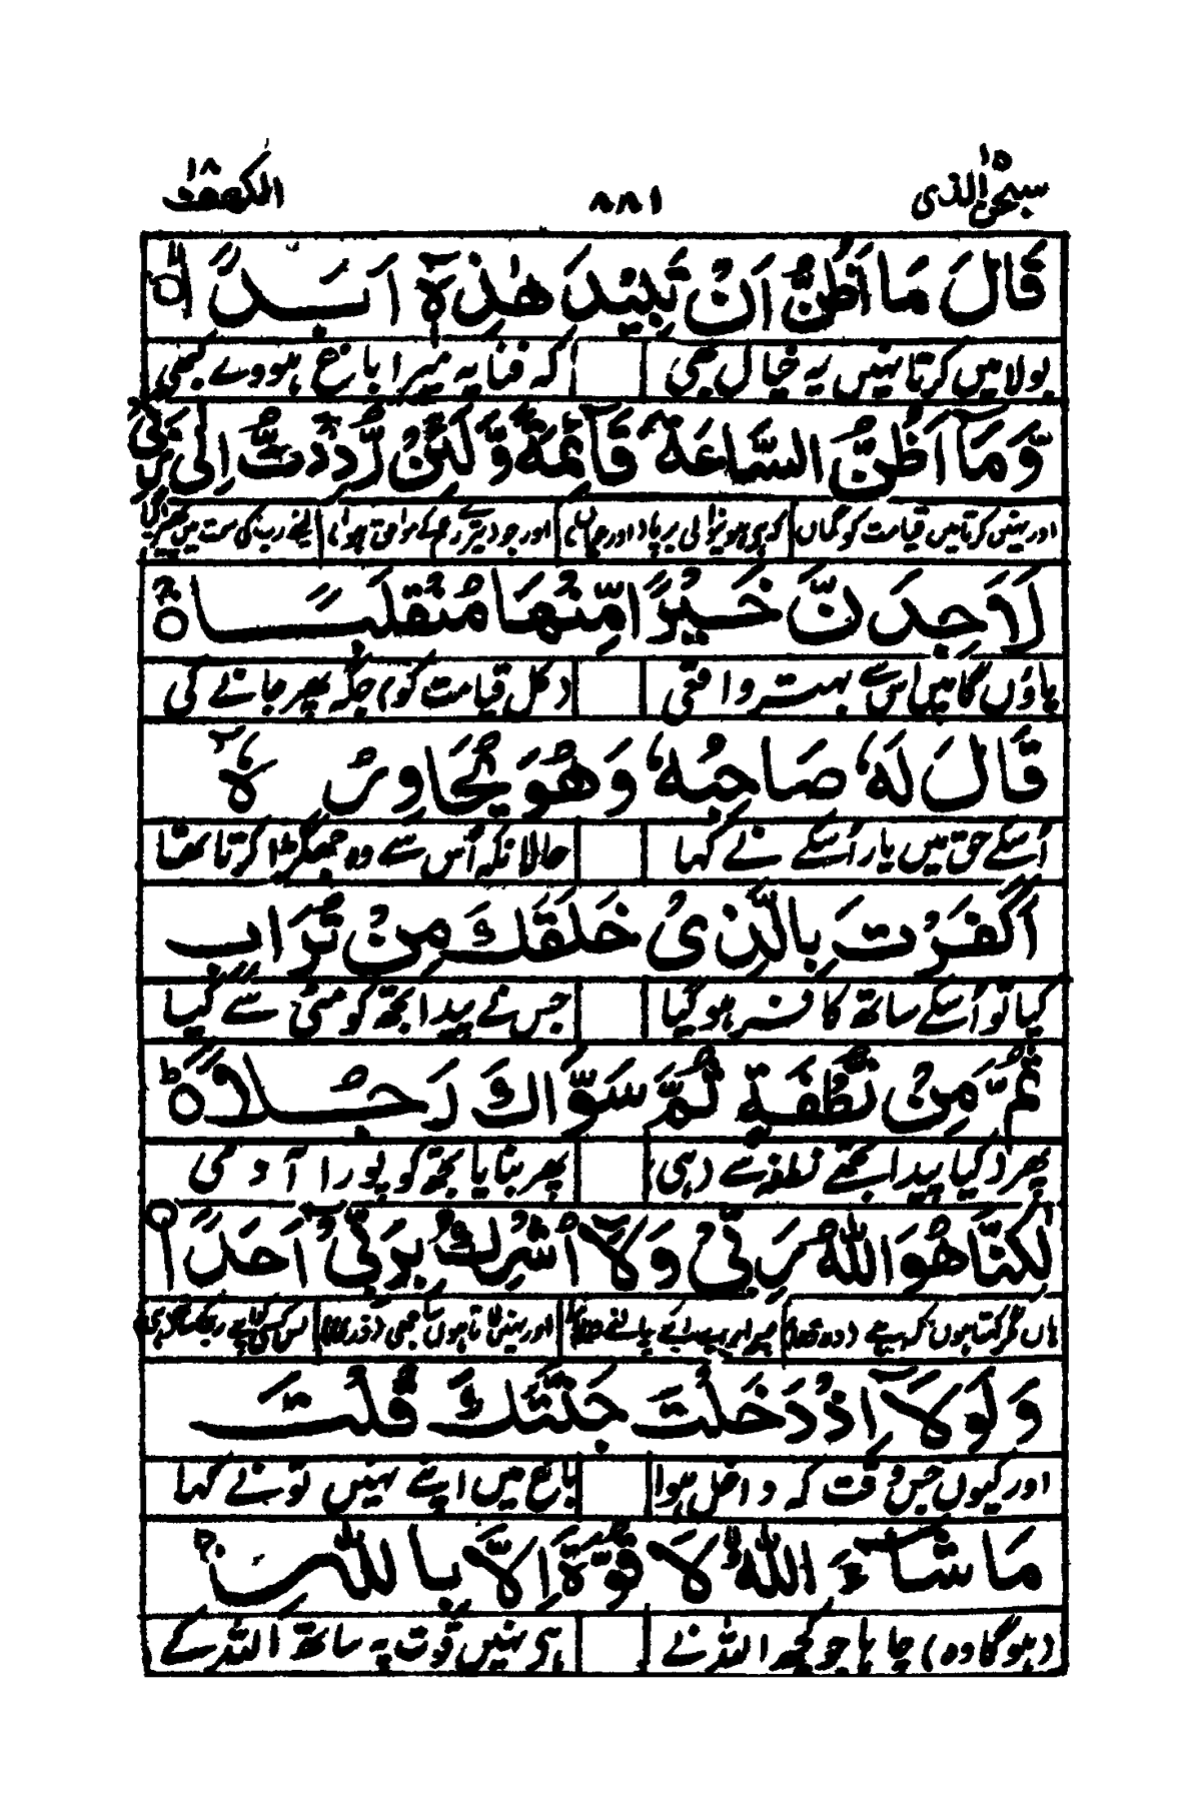 سبحٰن الذی ١٥ ٨٨١ الکھف ١٨
قَالَ مَا اَظُنُّ اَنْ تَبِيْدَ هٰذِهٖٓ اَبَدًا ۝
بولا میں کرتا نہیں یہ خیال بھی کہ فنا یہ میرا باغ ہووے کبھی
وَّمَآ اَظُنُّ السَّاعَةَ قَآئِمَةً وَّلَئِنْ رُّدِدْتُّ اِلٰى رَبِّیْ
اور نہیں کرتا میں قیامت کو گماں کہ ہونیوالی برپا اور جو تیرے کے موافق ہوا اپنے رب کی سمت میں پھر گیا
لَاَجِدَنَّ خَيْرًا مِّنْهَا مُنْقَلَبًا ۝
پاؤں گا میں اس سے بہتر واقعی (کل قیامت کو) جگہ پھر جانے کی
قَالَ لَهٗ صَاحِبُهٗ وَهُوَ يُحَاوِرُهٗٓ
اُسکے حق میں یار اُسکے نے کہا حالانکہ اُس سے وہ جھگڑا کرتا تھا
اَكَفَرْتَ بِالَّذِیْ خَلَقَكَ مِنْ تُرَابٍ
کیا تو اُسکے ساتھ کافر ہو گیا جس نے پیدا تجھ کو مٹی سے کیا
ثُمَّ مِنْ نُّطْفَةٍ ثُمَّ سَوّٰىكَ رَجُلًا ۝ؕ
پھر (کیا پیدا تجھے نطفہ سے (ہی) پھر بنایا تجھ کو پورا آدمی
لٰكِنَّا هُوَ اللّٰهُ رَبِّیْ وَلَآ اُشْرِكُ بِرَبِّیْٓ اَحَدًا ۝
ہاں مگر کہتا ہوں کہ ہے (وہ خدا) میرا رب پالنے والا اور نہیں لاتا ہوں میں بھی کس کسی کو اپنے رب کے ساتھ ہی
وَلَوْلَآ اِذْ دَخَلْتَ جَنَّتَكَ قُلْتَ
اور کیوں جس وقت کہ داخل ہوا باغ میں اپنے نہیں تو نے کہا
مَا شَآءَ اللّٰهُ لَا قُوَّةَ اِلَّا بِاللّٰهِ ۚ
(ہوگا وہ) چاہا جو کچھ اللہ نے ہی نہیں قوت یہ ساتھ اللہ کے